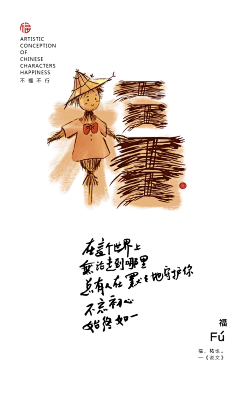 福
ARTISTIC
CONCEPTION
OF
CHINESE
CHARACTERS
HAPPINESS
不福不行
在这个世界上
无论走到哪里
总有人在默默地守护你
不忘初心
始终如一
福
Fú
福，祐也。
—《说文》